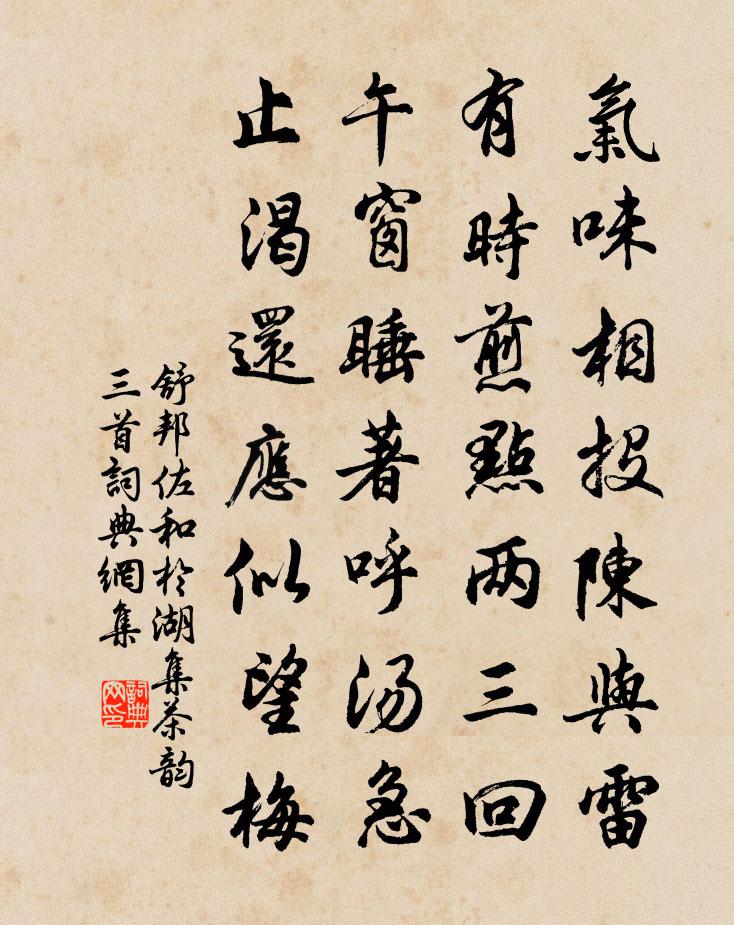 氣味相投陳與雷
有時煎點兩三回
午窗睡著呼湯急
止渴還應似望梅
舒邦佐和於湖集茶韵
三首詞典網集
詞典
网印